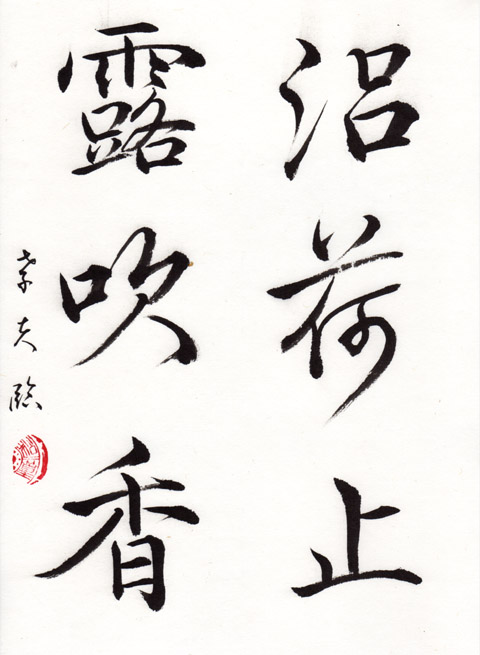 沼荷止
露吹香
孝夫臨